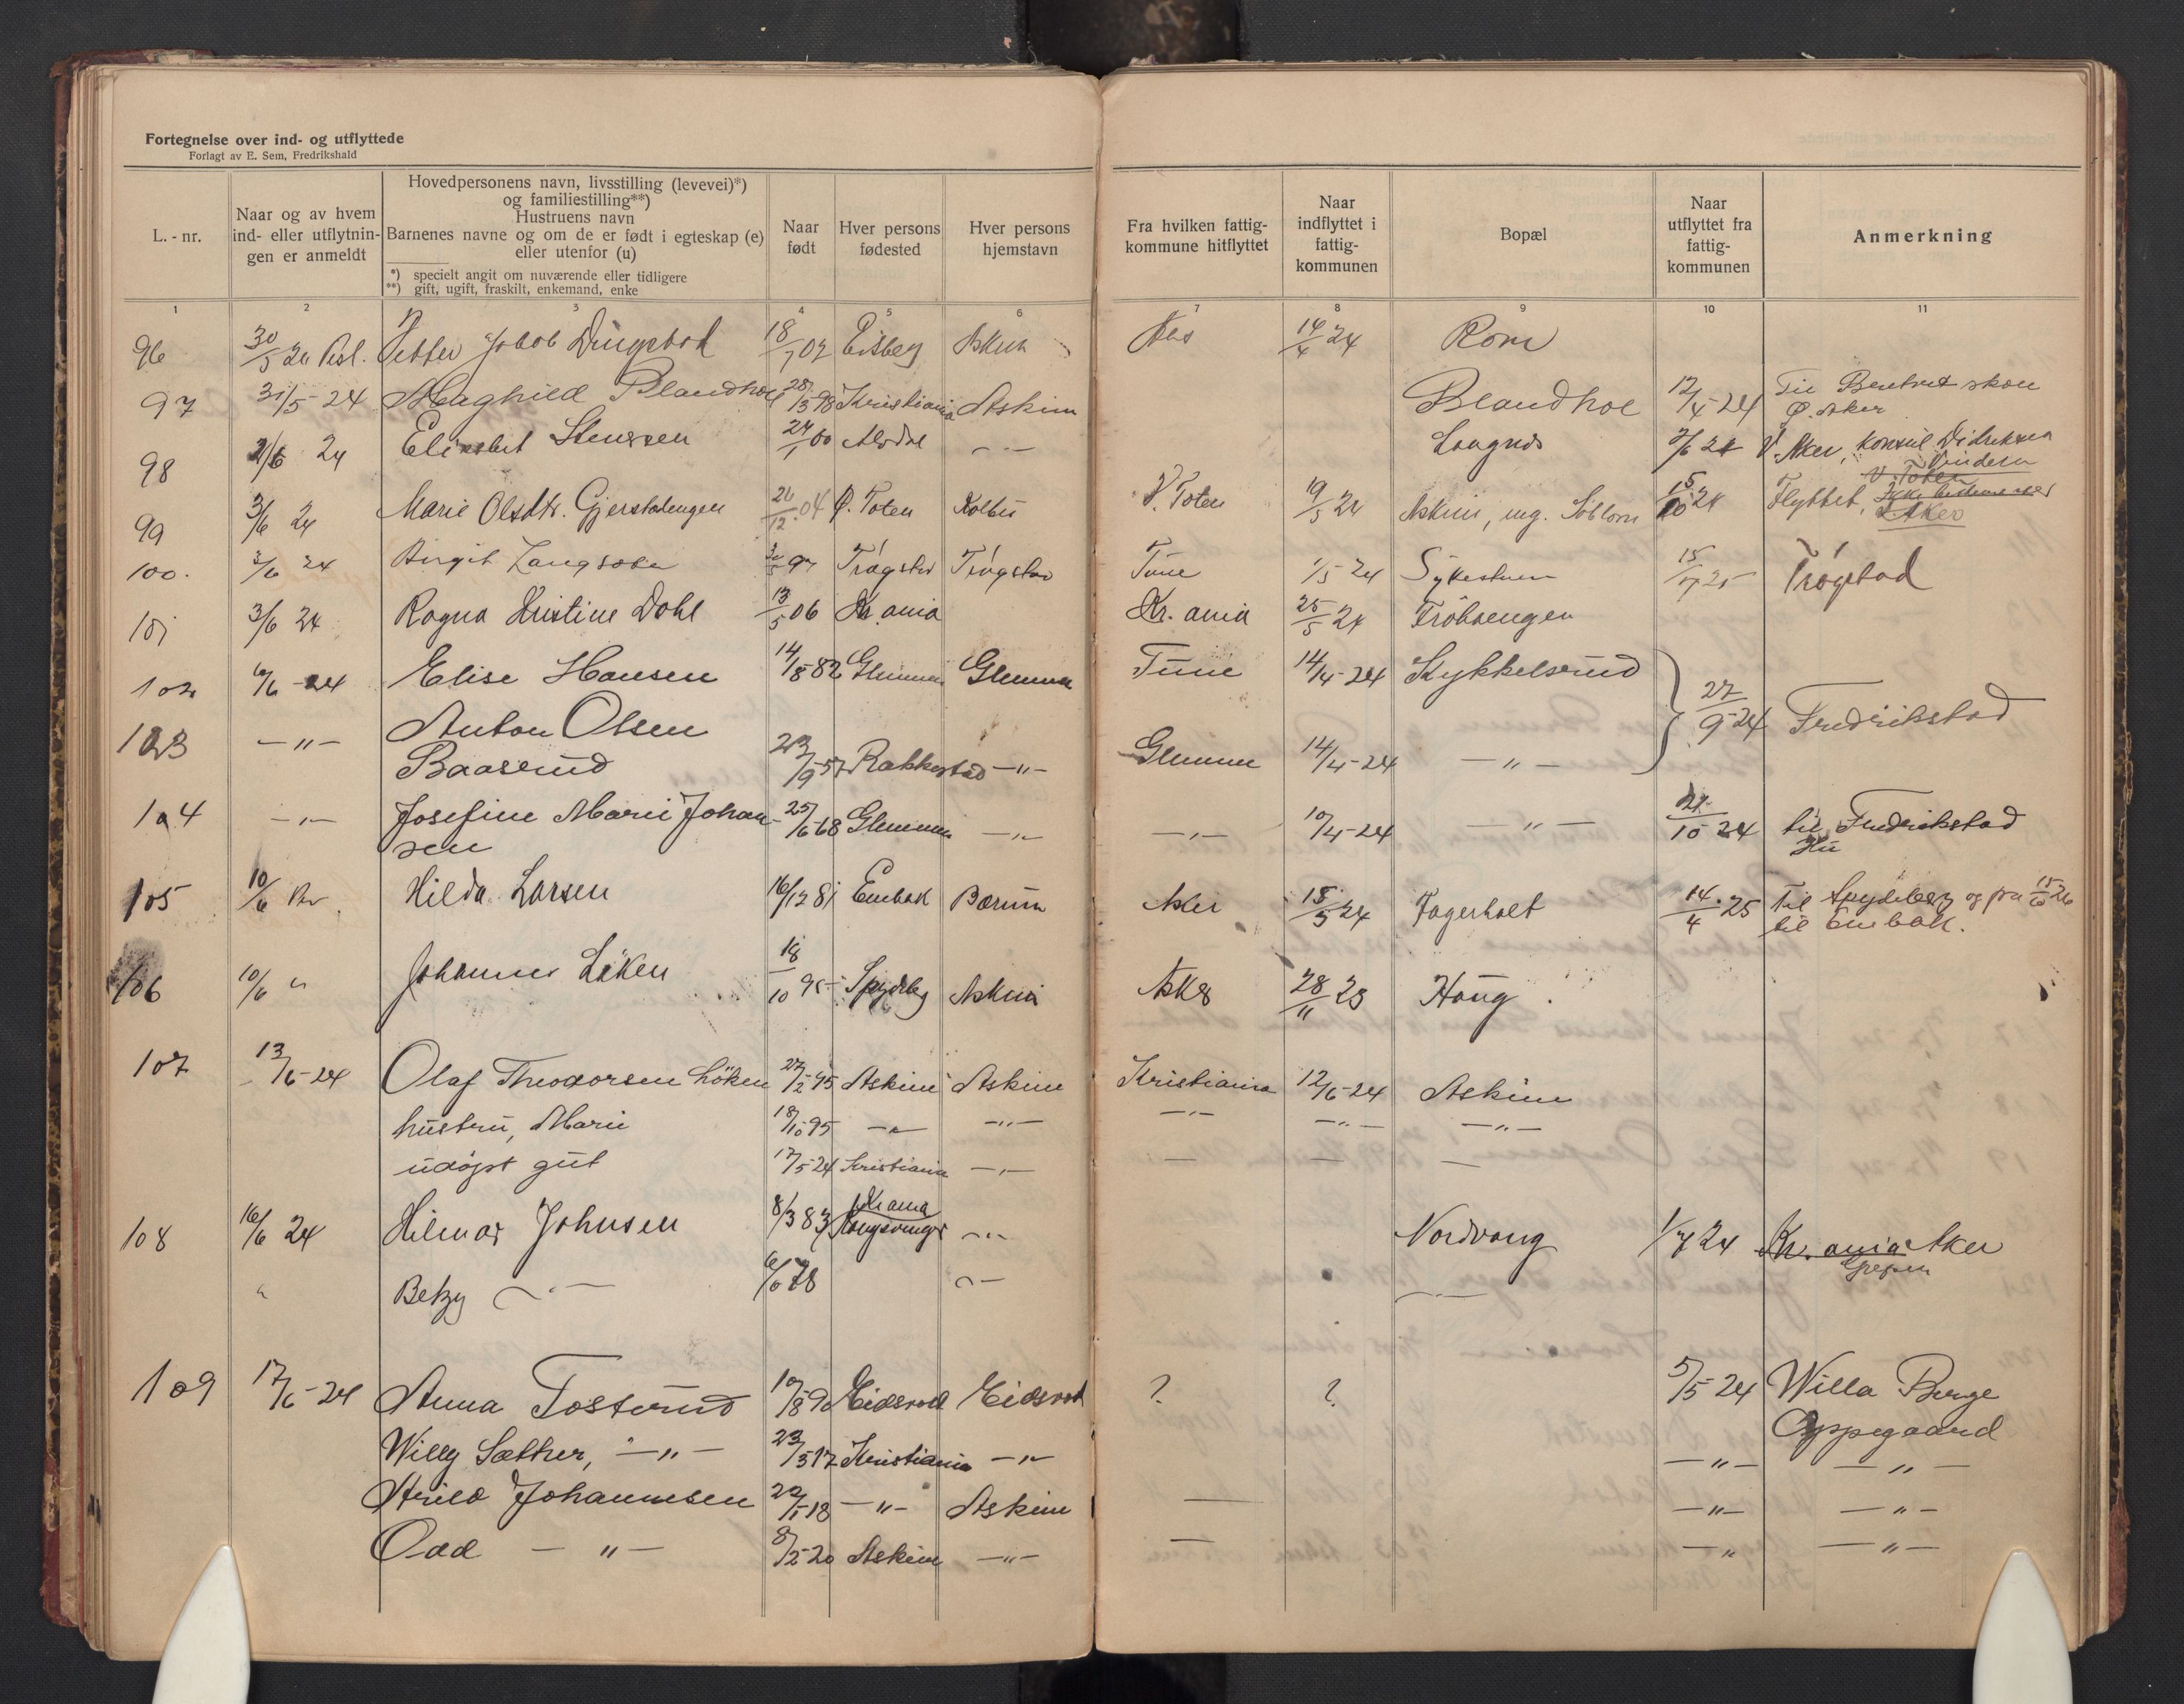 Fortegnelse over ind- og utflyttede
Forlagt av E. Sem, Fredrikshald
L. - nr.
Naar og av hvem
ind- eller utflytnin-
gen er anmeldt
Hovedpersonens navn, livsstilling (levevei)*)
og familiestilling**)
Hustruens navn
Barnenes navne og om de er født i egteskap (e)
eller utenfor (u)
*) specielt angit om nuværende eller tidligere
**) gift, ugift, fraskilt, enkemand, enke
Naar
født
Hver persons
fødested
Hver persons
hjemstavn
Fra hvilken fattig-
kommune hitflyttet
Naar
indflyttet i
fattig-
kommunen
Bopæl
Naar
utflyttet fra
fattig-
kommunen
Anmerkning
1 2 3 4 5 6 7 8 9 10 11
96 30/5 24 Petter Jakob Dingstad 18/1 02 Eisberg Askim Aas 14/4 24 Rom
97 31/5-24 Maghild Blandhol 28/3 98 Kristiania Askim Blandhol 12/4-24 Til
Ø. Aker
98 2/6 24 Elisabet Stensen 24/1 00 — " — Langnes 2/6 24 V. Aker, Konsul Didriksen
Vinderen
V. Toten
99 3/6 24 Marie Olsdtr. Gjerstadengen 26/12 04 Ø. Toten Kolbu V. Toten 19/5 24 Askim, ing. 15/10 24 Flyttet,
Aker
100. 3/6 24 Birgit Langsæter Trøgstad Trøgstad Tune 1/5 24 Sykestuen 15/7 25 Trøgstad
101 3/6 24 Ragna Kristine Dahl 13/5 06 Kr. ania Kr. ania 25/5 24 Frøhaengen
102 6/6-24 Elise Hansen 14/8 82 Glemmen Glemmen Tune 14/4-24 Kykkelsrud
27/9-24 Fredrikstad
103 — " — Anton Olsen
Baaserud 23/9-57 Rakkestad — " — Glemmen 14/4-24 — " —
104 — " — Josefine Marie Johan-
sen 25/6-68 Glemmen — " — — " — 10/4-24 — " — 21/10 24 til Fredrikstad
105 10/6 Hilda Larsen 16/12 81 Enebak Bærum Asker 15/5 24 Fagerholt 14/4 25 Til Spydeberg og fra 15/10 26
til Enebak.
106 10/6 " Johannes Løken 18/10 95 Spydebg Askim Asker 28/11 23 Haug
107 13/6-24 Olaf Theodorsen Løken 27/2-95 Askim Askim Kristiania 12/6-24 Askim
hustru, Marie 18/10 95 — " — — " — — " — — " — — " —
udøpt gut 17/5-24 Kristiania — " — — — —
108 16/6 24 Hilmar Johnsen 8/3 83 Kr ania
Kongsvinger — " — Nordvang 1/7 24 Kr. ania Aker
" Betzy — " — 6/10 78 — " — — " —
109 17/6-24 Anna Tosterud 10/8 90 Eidsvold Eidsvold ? ? 5/5-24 Willa Berge
Oppegaard
Willy Sæther, — " — 23/5 17 Kristiania — " — — " — — " —
Arild Johannesen 22/1-18 — " — Askim — — " — — " —
Odd — " — 8/2-20 Askim — " — — — " — — " —